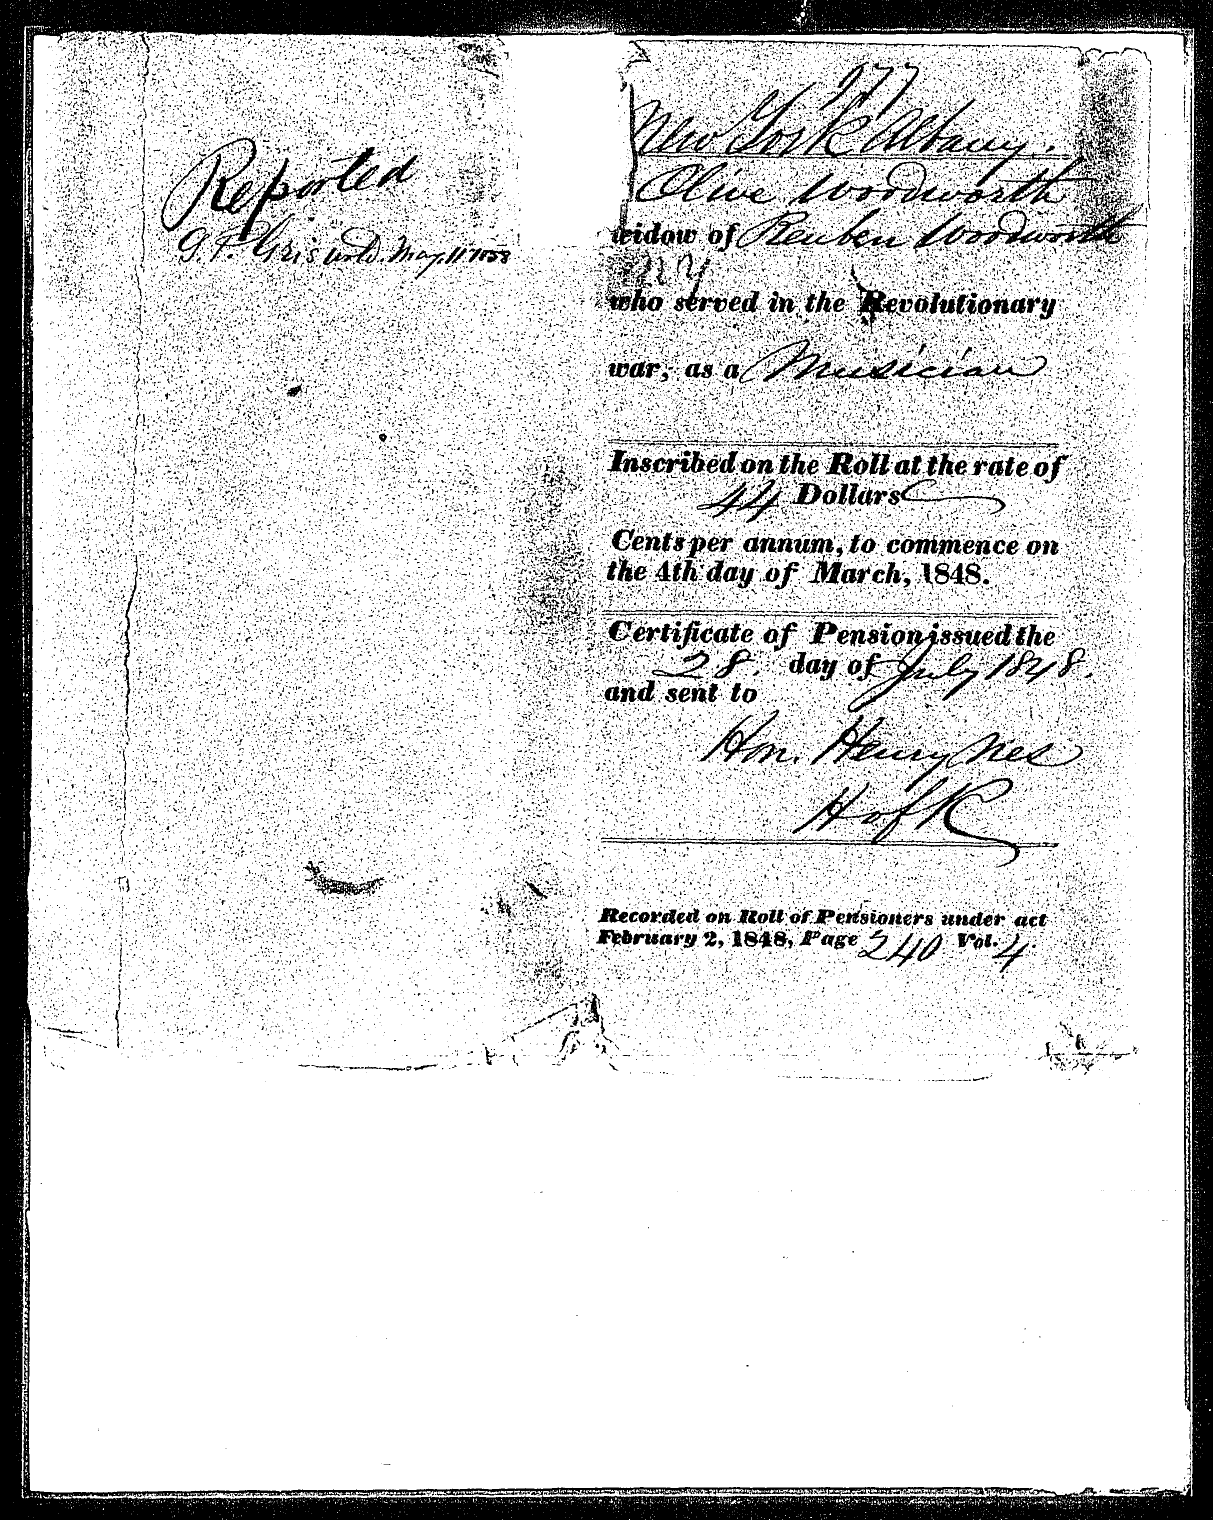 Reported
G. F. Griswold. May 11 1858
977
New York Albany.
Olive Woodworth
widow of Reuben Woodworth
NY
who served in the Revolutionary
war, as a Musician
Inscribed on the Roll at the rate of
44 Dollars
Cents per annum, to commence on
the 4th day of March, 1848.
Certificate of Pension issued the
28. day of July 1848.
and sent to
Hon. Henry Nes
H of R
Recorded on Roll of Pensioners under act
February 2, 1848, Page 240 Vol. 4.